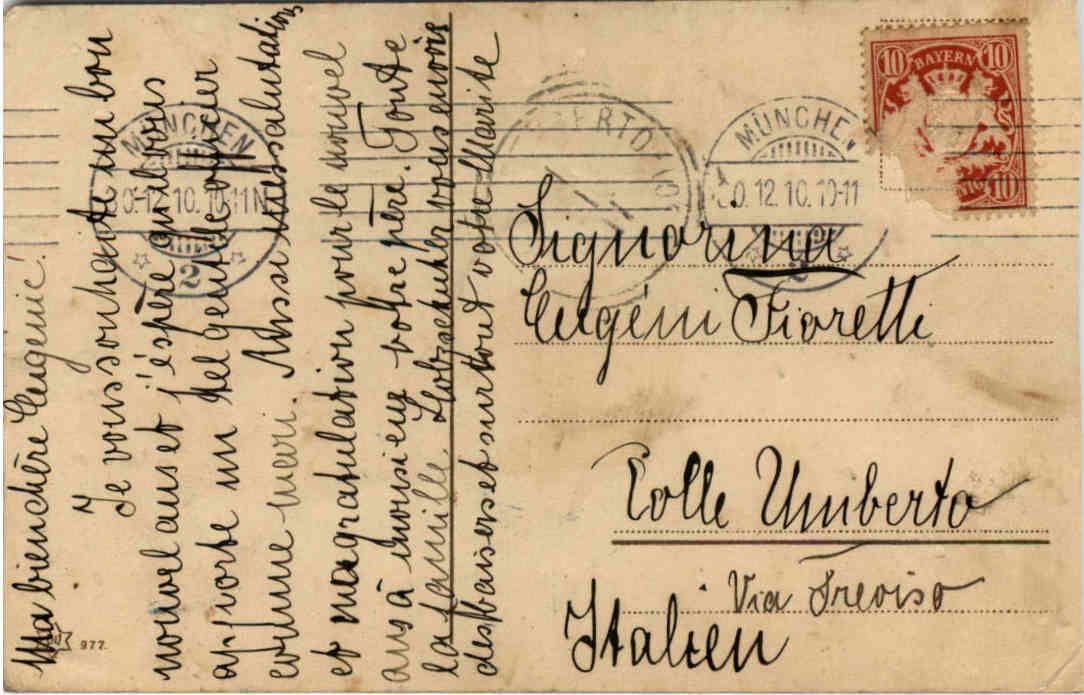 Ma bien chère Eugénie!
Je vous souhaite un bon
nouvel ans et j'éspère qu'il vous
apporte un tel gentil officier
comme mari. Aussi mes salutations
et ma gratulation pour le nouvel
ans à monsieur votre père. Toute
la famille vous envois
des baisers et surtout votre Marite
977.
MÜNCHEN
30.12.10.10-11N
2
BERTO
MÜNCHEN
30.12.10.10-11
2
10 BAYERN 10
10
Signorina
Eugéni Fioretti
Colle Umberto
Via Treviso
Italien